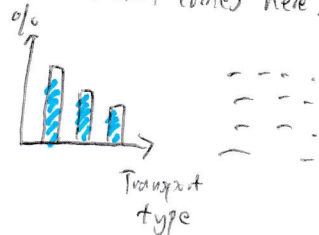 comes here.
%
Transport
type